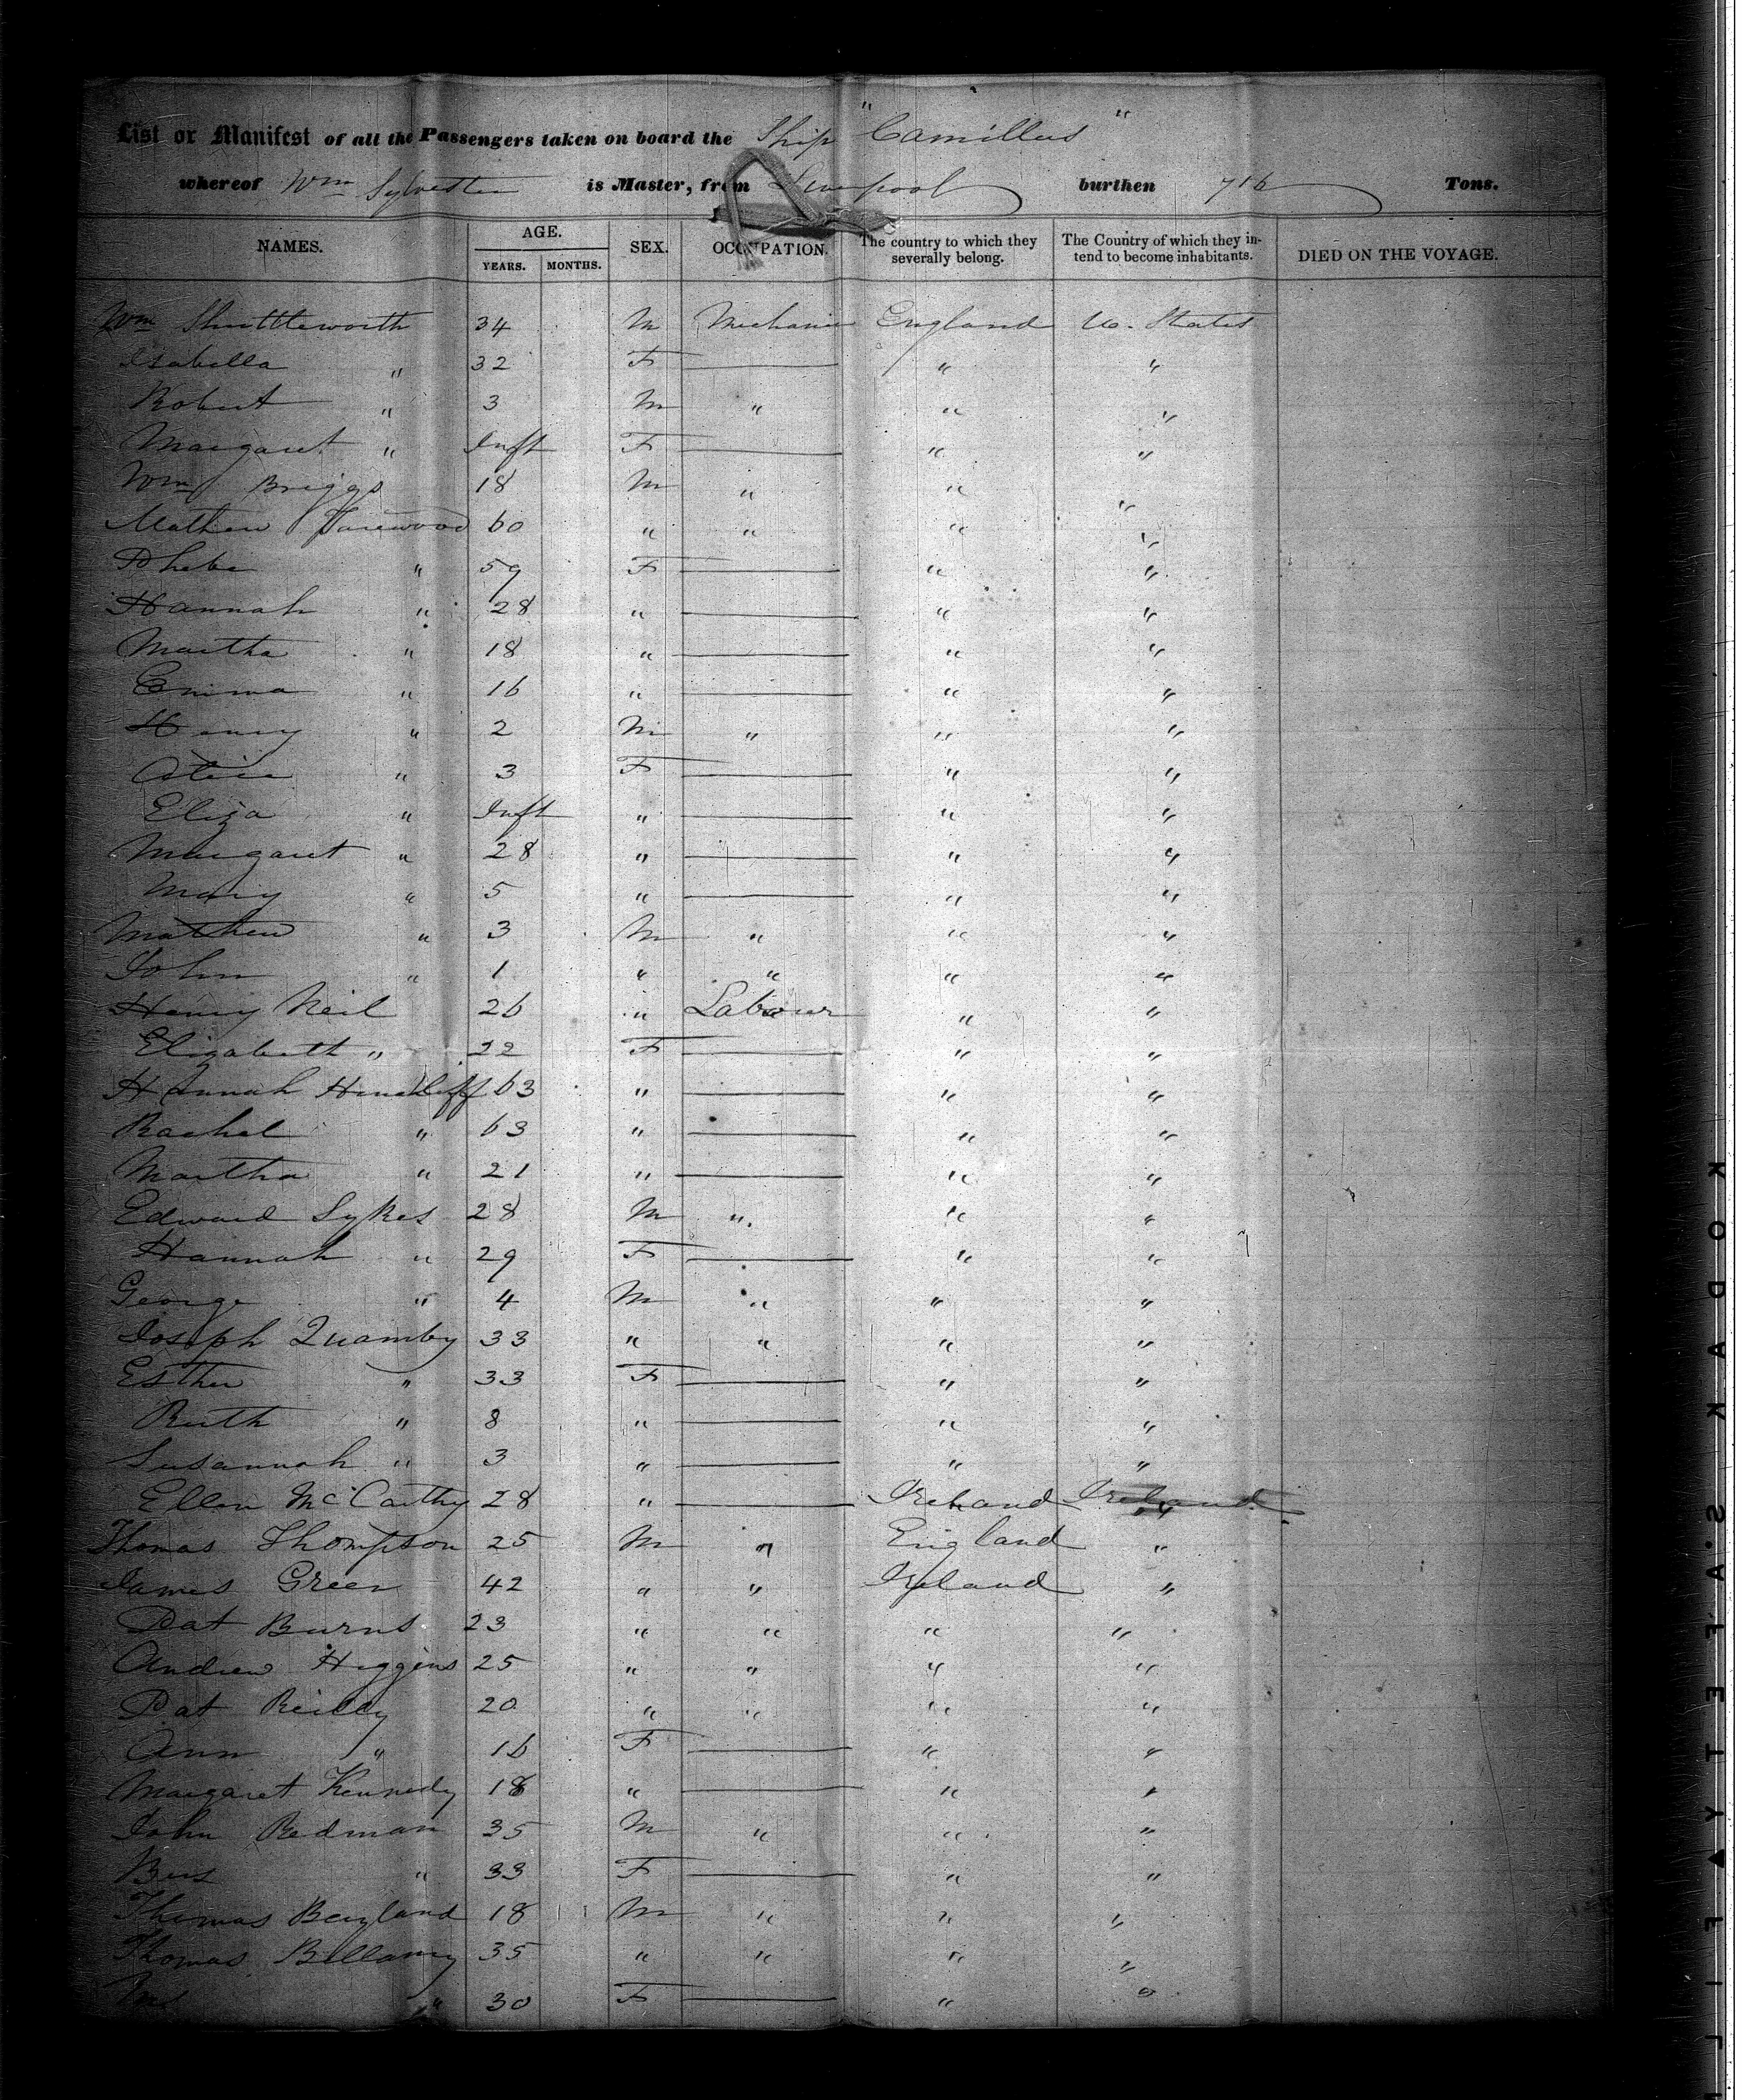 List or Manifest of all the Passengers taken on board the Ship "Camillus"
whereof Wm Sylvester is Master, from Liverpool burthen 716 Tons.
NAMES. AGE. YEARS. MONTHS. SEX. OCCUPATION. The country to which they severally belong. The Country of which they intend to become inhabitants. DIED ON THE VOYAGE.
Wm Shuttleworth 34 M Mechanic England U. States
Isabella " 32 F — " "
Robert " 3 M " " "
Margaret " Inft F — " "
Wm Briggs 18 M " " "
Mathew 60 " " " "
Phebe " 59 F — " "
Hannah " 28 " — " "
Martha " 18 " — " "
Emma " 16 " — " "
Henry " 2 M " " "
Alice " 3 F — " "
Eliza " Inft " — " "
Margaret " 28 " — " "
Mary " 5 " — " "
Mathew " 3 M " " "
John " 1 " " " "
Henry Neil 26 " Labour " "
Elizabeth " 22 F — " "
Hannah Hinchliff 63 " — " "
Rachel " 63 " — " "
Martha " 21 " — " "
Edward Sykes 28 M " " "
Hannah " 29 F — " "
George " 4 M " " "
Joseph Quamby 33 " " " "
Esther " 33 F — " "
Ruth " 8 " — " "
Susannah " 3 " — " "
Ellen McCarthy 28 " — Ireland Ireland "
Thomas Thompson 25 M " England "
James Green 42 " " Ireland "
Pat Burns 23 " " " "
Andrew Higgins 25 " " " "
Pat Reilly 20 " " " "
Ann " 16 F — " "
Margaret Kennedy 18 " — " "
John Redman 35 M " " "
" 33 F — " "
Thomas 18 M " " "
Thomas Bellamy 35 " " " "
" 30 F — " "
KODAK S.A.F.E.T.Y ▲ FILM